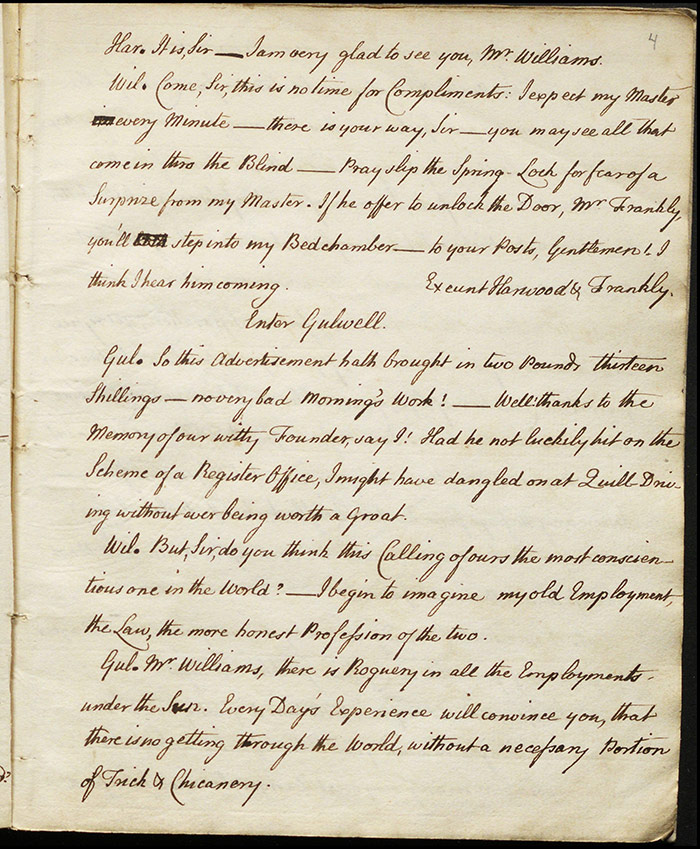 4
Har. It is, Sir — I am very glad to see you, Mr Williams.
Wil. Come, Sir, this is no time for Compliments: I expect my Master
every Minute — there is your way, Sir — you may see all that
come in thro the Blind — Pray slip the Spring-Lock for fear of a
Surprize from my Master. If he offer to unlock the Door, Mr Frankly,
you'll step into my Bedchamber — to your Posts, Gentlemen! I
think I hear him coming. Exeunt Harwood & Frankly.
Enter Gulwell.
Gul. So this Advertisement hath brought in two Pounds thirteen
Shillings — no very bad Morning's Work! — Well! thanks to the
Memory of our witty Founder, say I! Had he not luckily hit on the
Scheme of a Register Office, I might have dangled on at Quill-Driv-
ing without ever being worth a Groat.
Wil. But, Sir, do you think this Calling of ours the most conscien-
tious one in the World? — I begin to imagine my old Employment,
the Law, the more honest Profession of the two.
Gul. Mr Williams, there is Roguery in all the Employments
under the Sun. Every Day's Experience will convince you, that
there is no getting through the World, without a necessary Portion
of Trick & Chicanery.